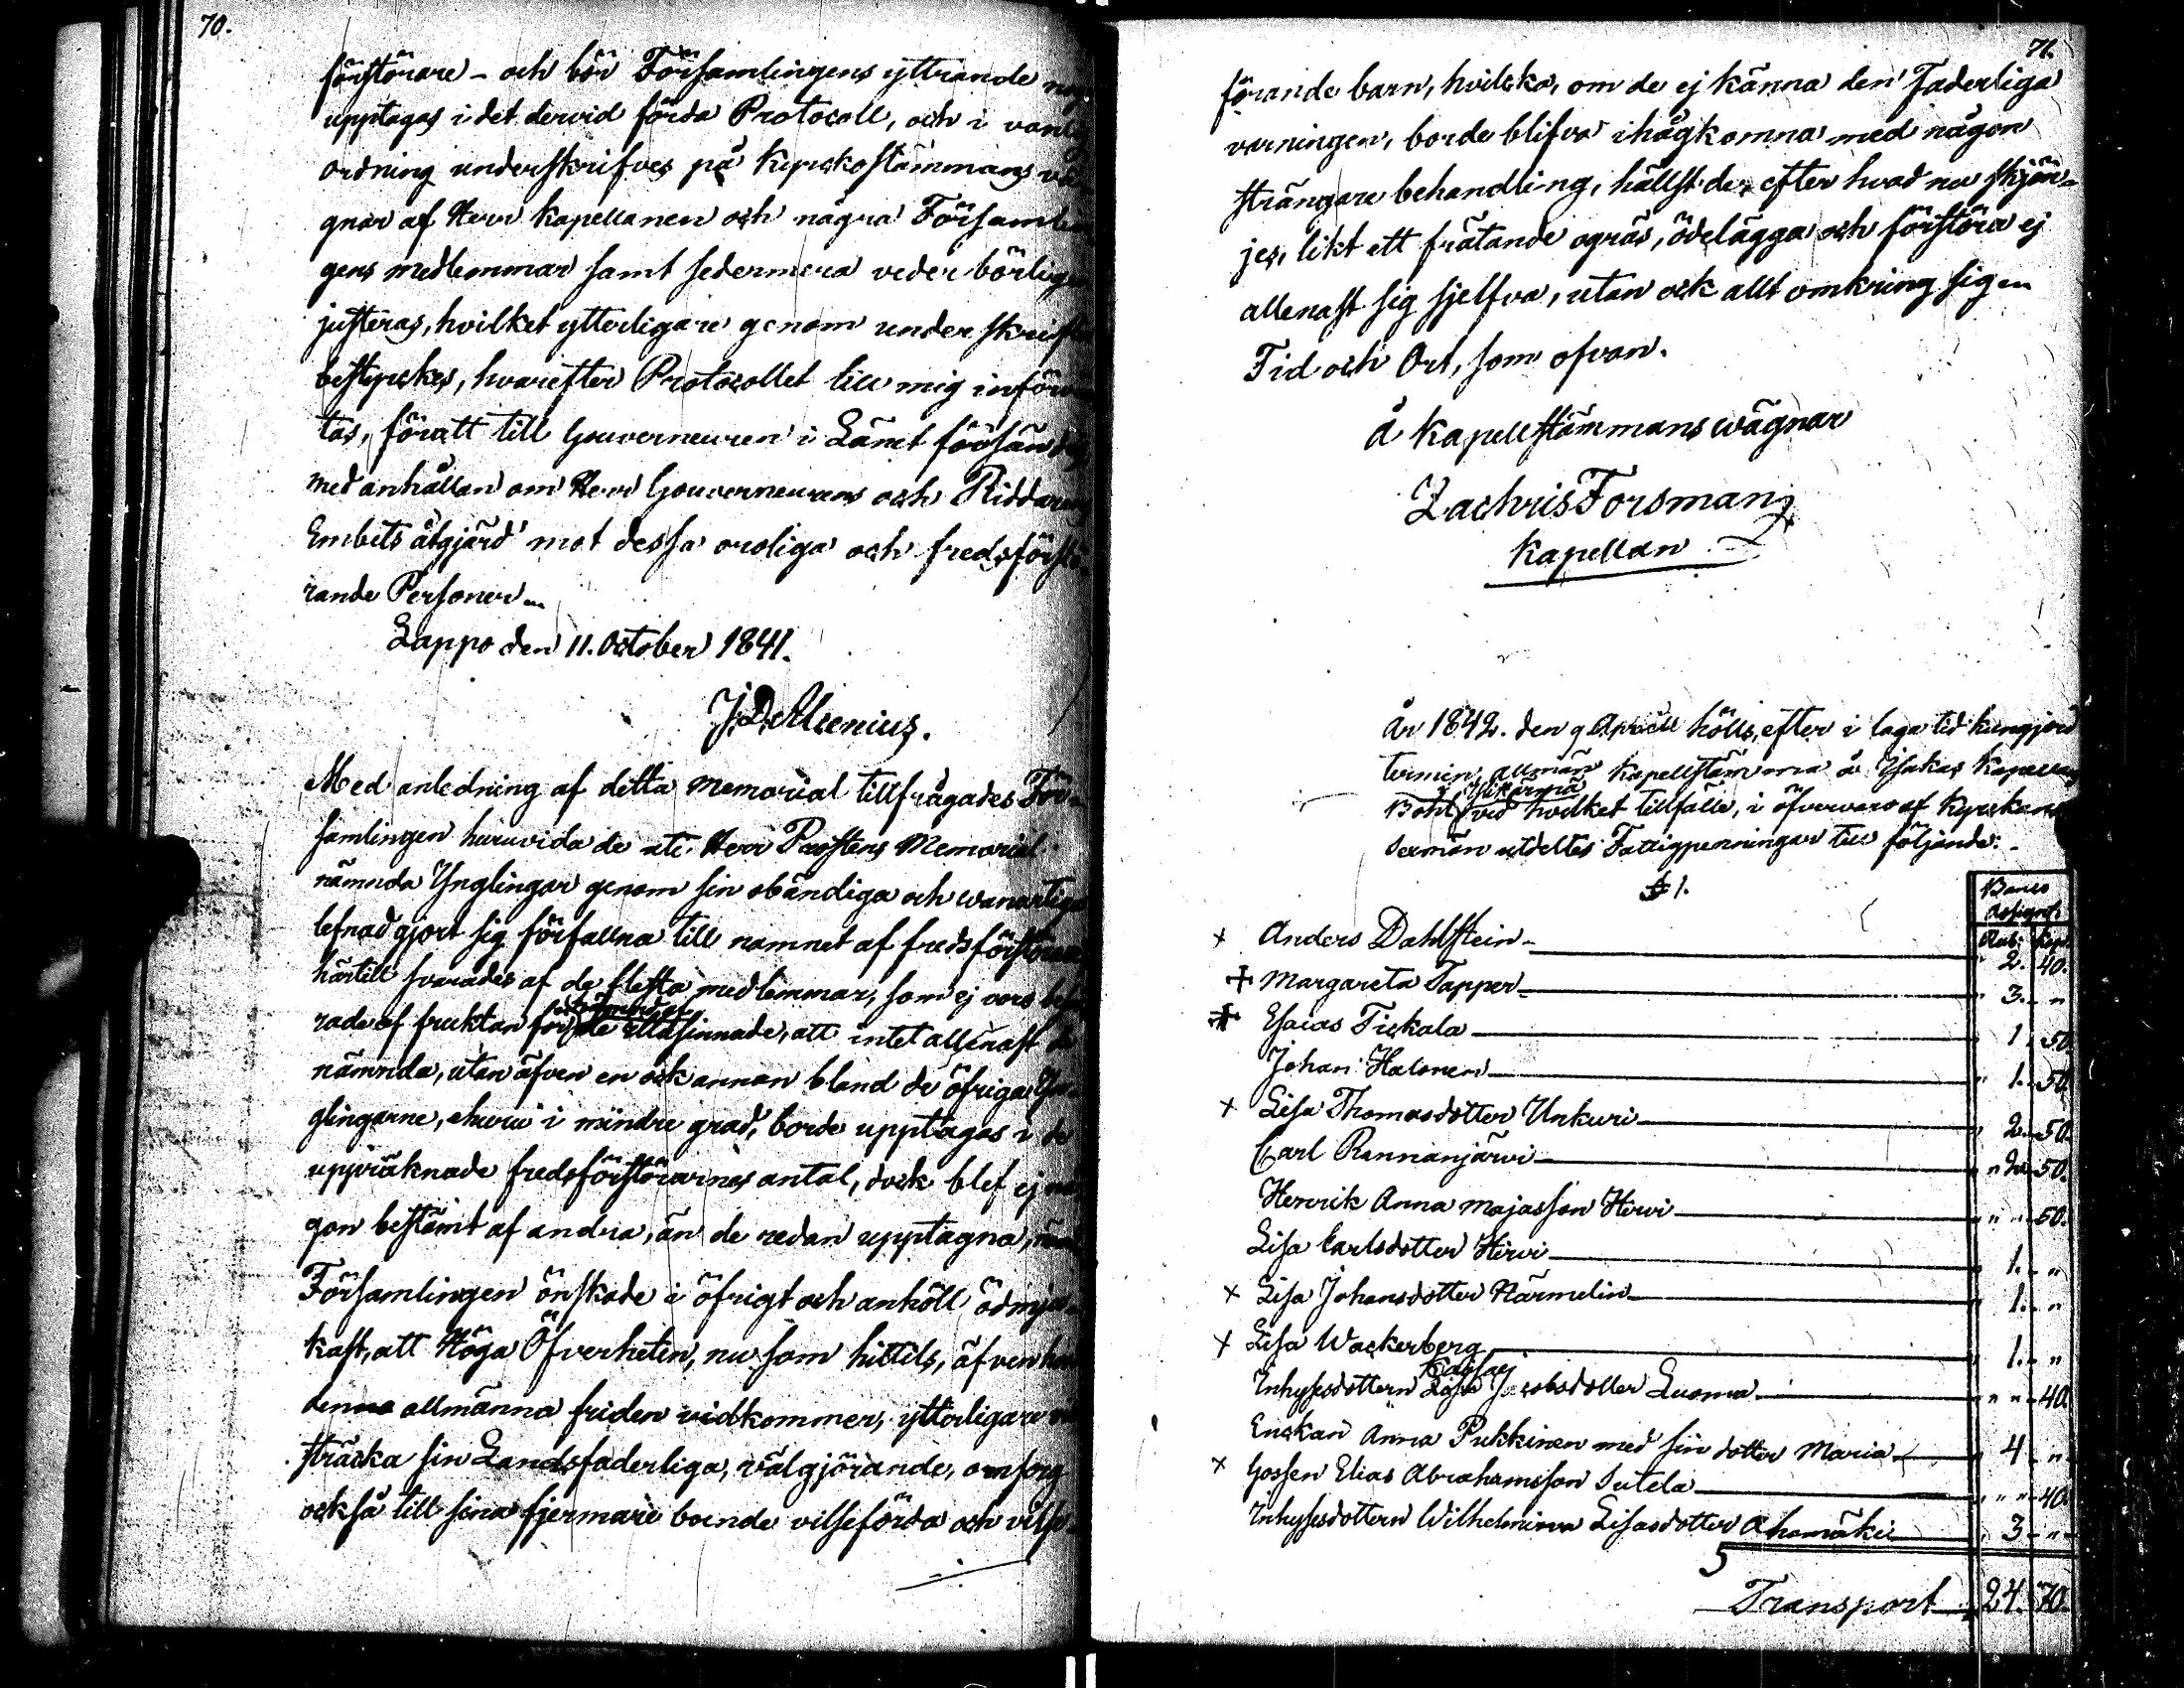 70.
förstörare – och bör Församlingens yttrande
upptagas i det dervid förda Protocoll, och i vanlig
ordning underskrifves på Kyrckostämmans
gnar af Herr Kapellanen och några Försam
gens medlemmar samt sedermera vederbörligen
justeras, hvilket ytterligare genom underskrift
bestyrckes, hvarefter Protocollet till mig införvän
tas, för att till Gouverneuren i Länet försändas
med anhållan om Herr Gouverneurens och Riddarens
Embets åtgjärd mot dessa oroliga och fredsförstö-
rande Personer.
Lappo den 11. October 1841.
Med anledning af detta Memorial tillfrågades För-
samlingen huruvida de uti Herr Prostens Memorial
nämnda Ynglingar genom sin obändiga och wanartiga
lefnad gjort sig förfallna till namnet af fredsförstörare
härtill svarades af de flesta medlemmar, som ej voro
rade af fruktan för de illasinnade, att intet allenast de
nämnda, utan äfven en ock annan bland de öfriga Yn-
glingarne, ehuru i mindre grad, borde upptagas i de
uppräknade fredsförstörarnes antal, dock blef ej nå-
gon bestämt af andra, än de redan upptagna,
Församlingen önskade i öfrigt och anhöll ödmju-
kast, att Höga Öfverheten, nu som hittils, äfven
denna allmänna friden vidkommer, ytterligare
sträcka sin Landsfaderliga, välgjörande, omsorg
också till sina fjermare boende vilseförda och vilse-
71.
förande barn, hvilcka, om de ej känna den Faderliga
varningen, borde blifva ihågkomna med någon
strängare behandling, hällst de, efter hvad nu skjön-
jes, likt ett frätande ogräs, ödelägga och förstöra ej
allenast sig sjelfva, utan ock allt omkring sig
Tid och Ort, som ofvan.
å Kapellstämmans wägnar
Zachris Forsman
Kapellan
År 1842. den 9 Aprill hölls, efter i laga tid kungjord
termin, allmän Kapellstämma å Ylikärmä
Bohl vid hvilket tillfälle, i öfvervaro af Kyrckans
Sexmän utdeltes Fattigpenningar till följande:
§ 1.
Banco
Assignat:
Rub: Kop.
+ Anders Dahlstein 2. 40.
+ Margareta Tapper 3. "
+ Esaias Tickala 1. 50.
Johan Halonen 1. 50.
+ Lisa Thomasdotter Unkuri 2. 50.
Carl Rannanjärvi " 2. 50.
Henrik Anna Majasson Hirvi " " 50.
Lisa Carlsdotter Hirvi 1. "
+ Lisa Johansdotter Härmelin 1. "
+ Lisa Wackerberg 1. "
Inhysesdottern Caisa Jacobsdotter Luoma " " 40.
Enckan Anna Pukkinen med sin dotter Maria 4. "
+ Gossen Elias Abrahamsson Sutela " " 40.
Inhysesdottern Wilhelmina Lisasdotter Ahomäki 3. "
Transport 24. 70.